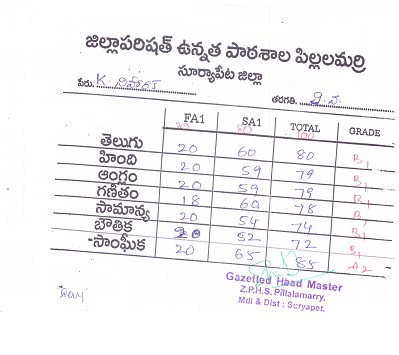 జిల్లాపరిషత్ ఉన్నత పాఠశాల పిల్లలమర్రి
సూర్యాపేట జిల్లా
పేరు. K.
తరగతి.
FA1 SA1 TOTAL GRADE
20 80 100
తెలుగు 20 60 80 B1
హింది 20 59 79 B1
ఆంగ్లం 20 59 79 B1
గణితం 18 60 78 B1
సామాన్య 20 54 74 B1
భౌతిక 20 52 72 B1
సాంఘీక 20 65 85 A2
Gazetted Head Master
Z.P.H.S. Pillalamarry,
Mdl & Dist : Suryapet.